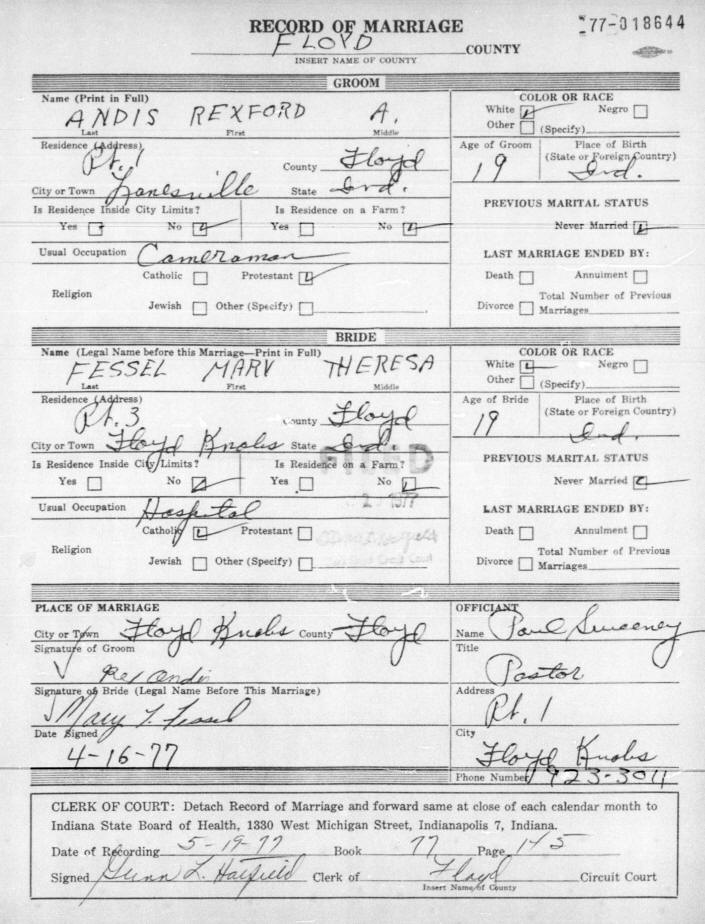 RECORD OF MARRIAGE
77-018644
FLOYD COUNTY
INSERT NAME OF COUNTY
GROOM
Name (Print in Full)
ANDIS REXFORD A.
Last First Middle
COLOR OR RACE
White Negro
Other (Specify)
Residence (Address)
Rt. 1
County Floyd
City or Town Lanesville State Ind.
Age of Groom
19
Place of Birth
(State or Foreign Country)
Ind.
Is Residence Inside City Limits?
Yes No
Is Residence on a Farm?
Yes No
PREVIOUS MARITAL STATUS
Never Married
Usual Occupation Cameraman
Religion
Catholic Protestant
Jewish Other (Specify)
LAST MARRIAGE ENDED BY:
Death Annulment
Divorce Total Number of Previous
Marriages
BRIDE
Name (Legal Name before this Marriage—Print in Full)
FESSEL MARY THERESA
Last First Middle
COLOR OR RACE
White Negro
Other (Specify)
Residence (Address)
Rt. 3
County Floyd
City or Town Floyd Knobs State Ind.
Age of Bride
19
Place of Birth
(State or Foreign Country)
Ind.
Is Residence Inside City Limits?
Yes No
Is Residence on a Farm?
Yes No
FILED
1977
PREVIOUS MARITAL STATUS
Never Married
Usual Occupation Hospital
Religion
Catholic Protestant
Jewish Other (Specify)
LAST MARRIAGE ENDED BY:
Death Annulment
Divorce Total Number of Previous
Marriages
PLACE OF MARRIAGE
City or Town Floyd Knobs County Floyd
Signature of Groom
Rex Andis
Signature of Bride (Legal Name Before This Marriage)
Mary T. Fessel
Date Signed
4-16-77
OFFICIANT
Name Paul Sweeney
Title
Pastor
Address
Rt. 1
City
Floyd Knobs
Phone Number 923-3011
CLERK OF COURT: Detach Record of Marriage and forward same at close of each calendar month to
Indiana State Board of Health, 1330 West Michigan Street, Indianapolis 7, Indiana.
Date of Recording 5-19-77 Book 77 Page 145
Signed Glenn L. Hatfield Clerk of Floyd Circuit Court
Insert Name of County